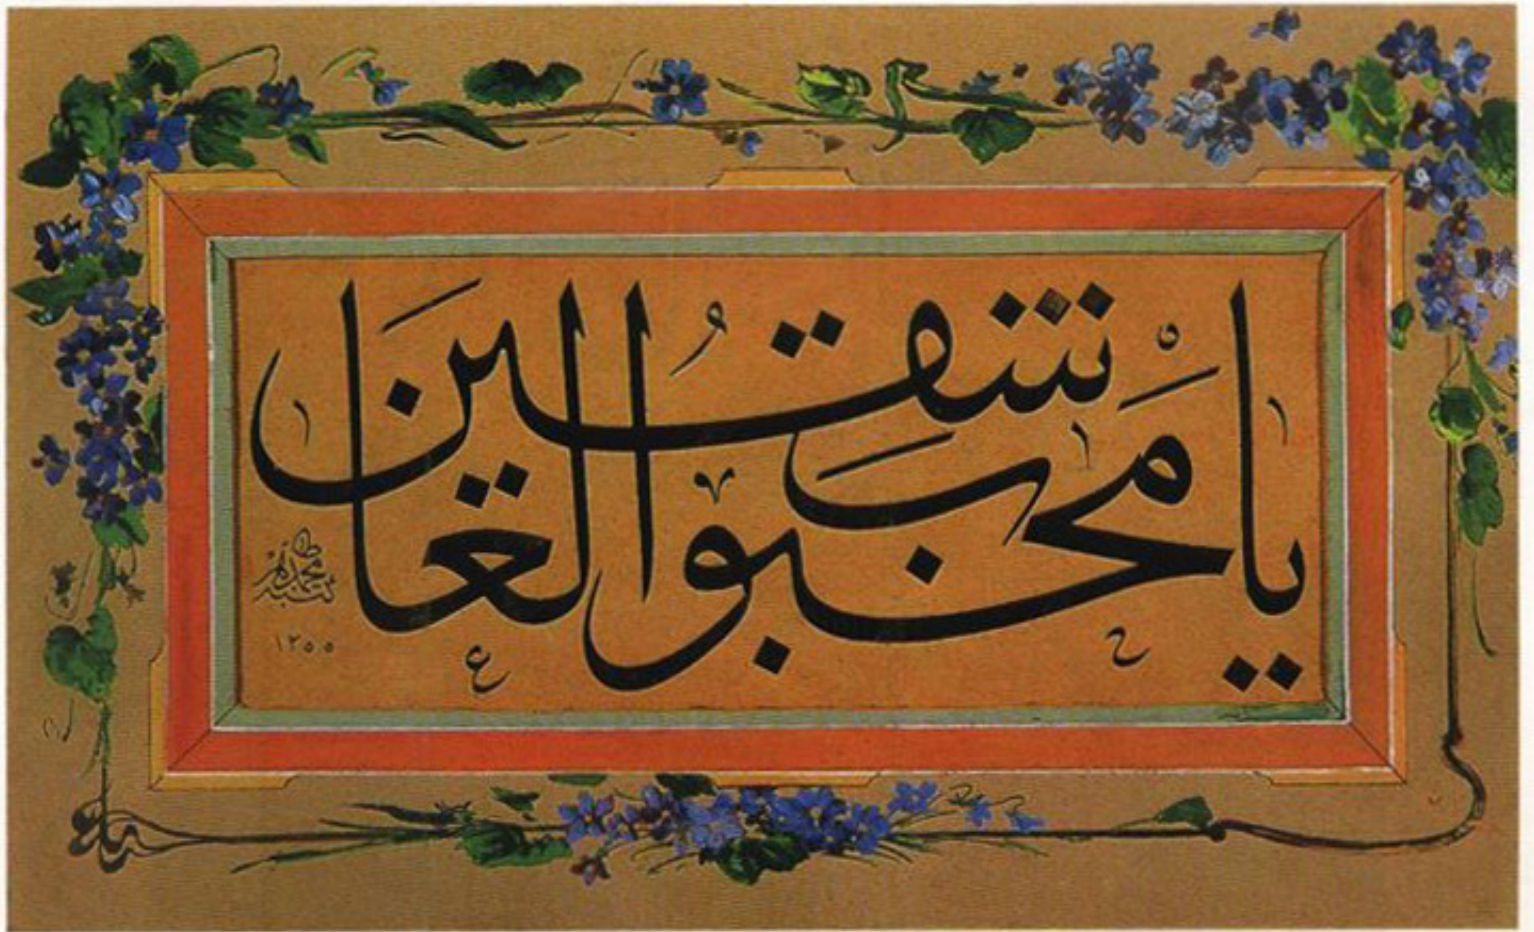 يا محبوب العاشقين
كتبه محمد طاهر
١٢٥٥